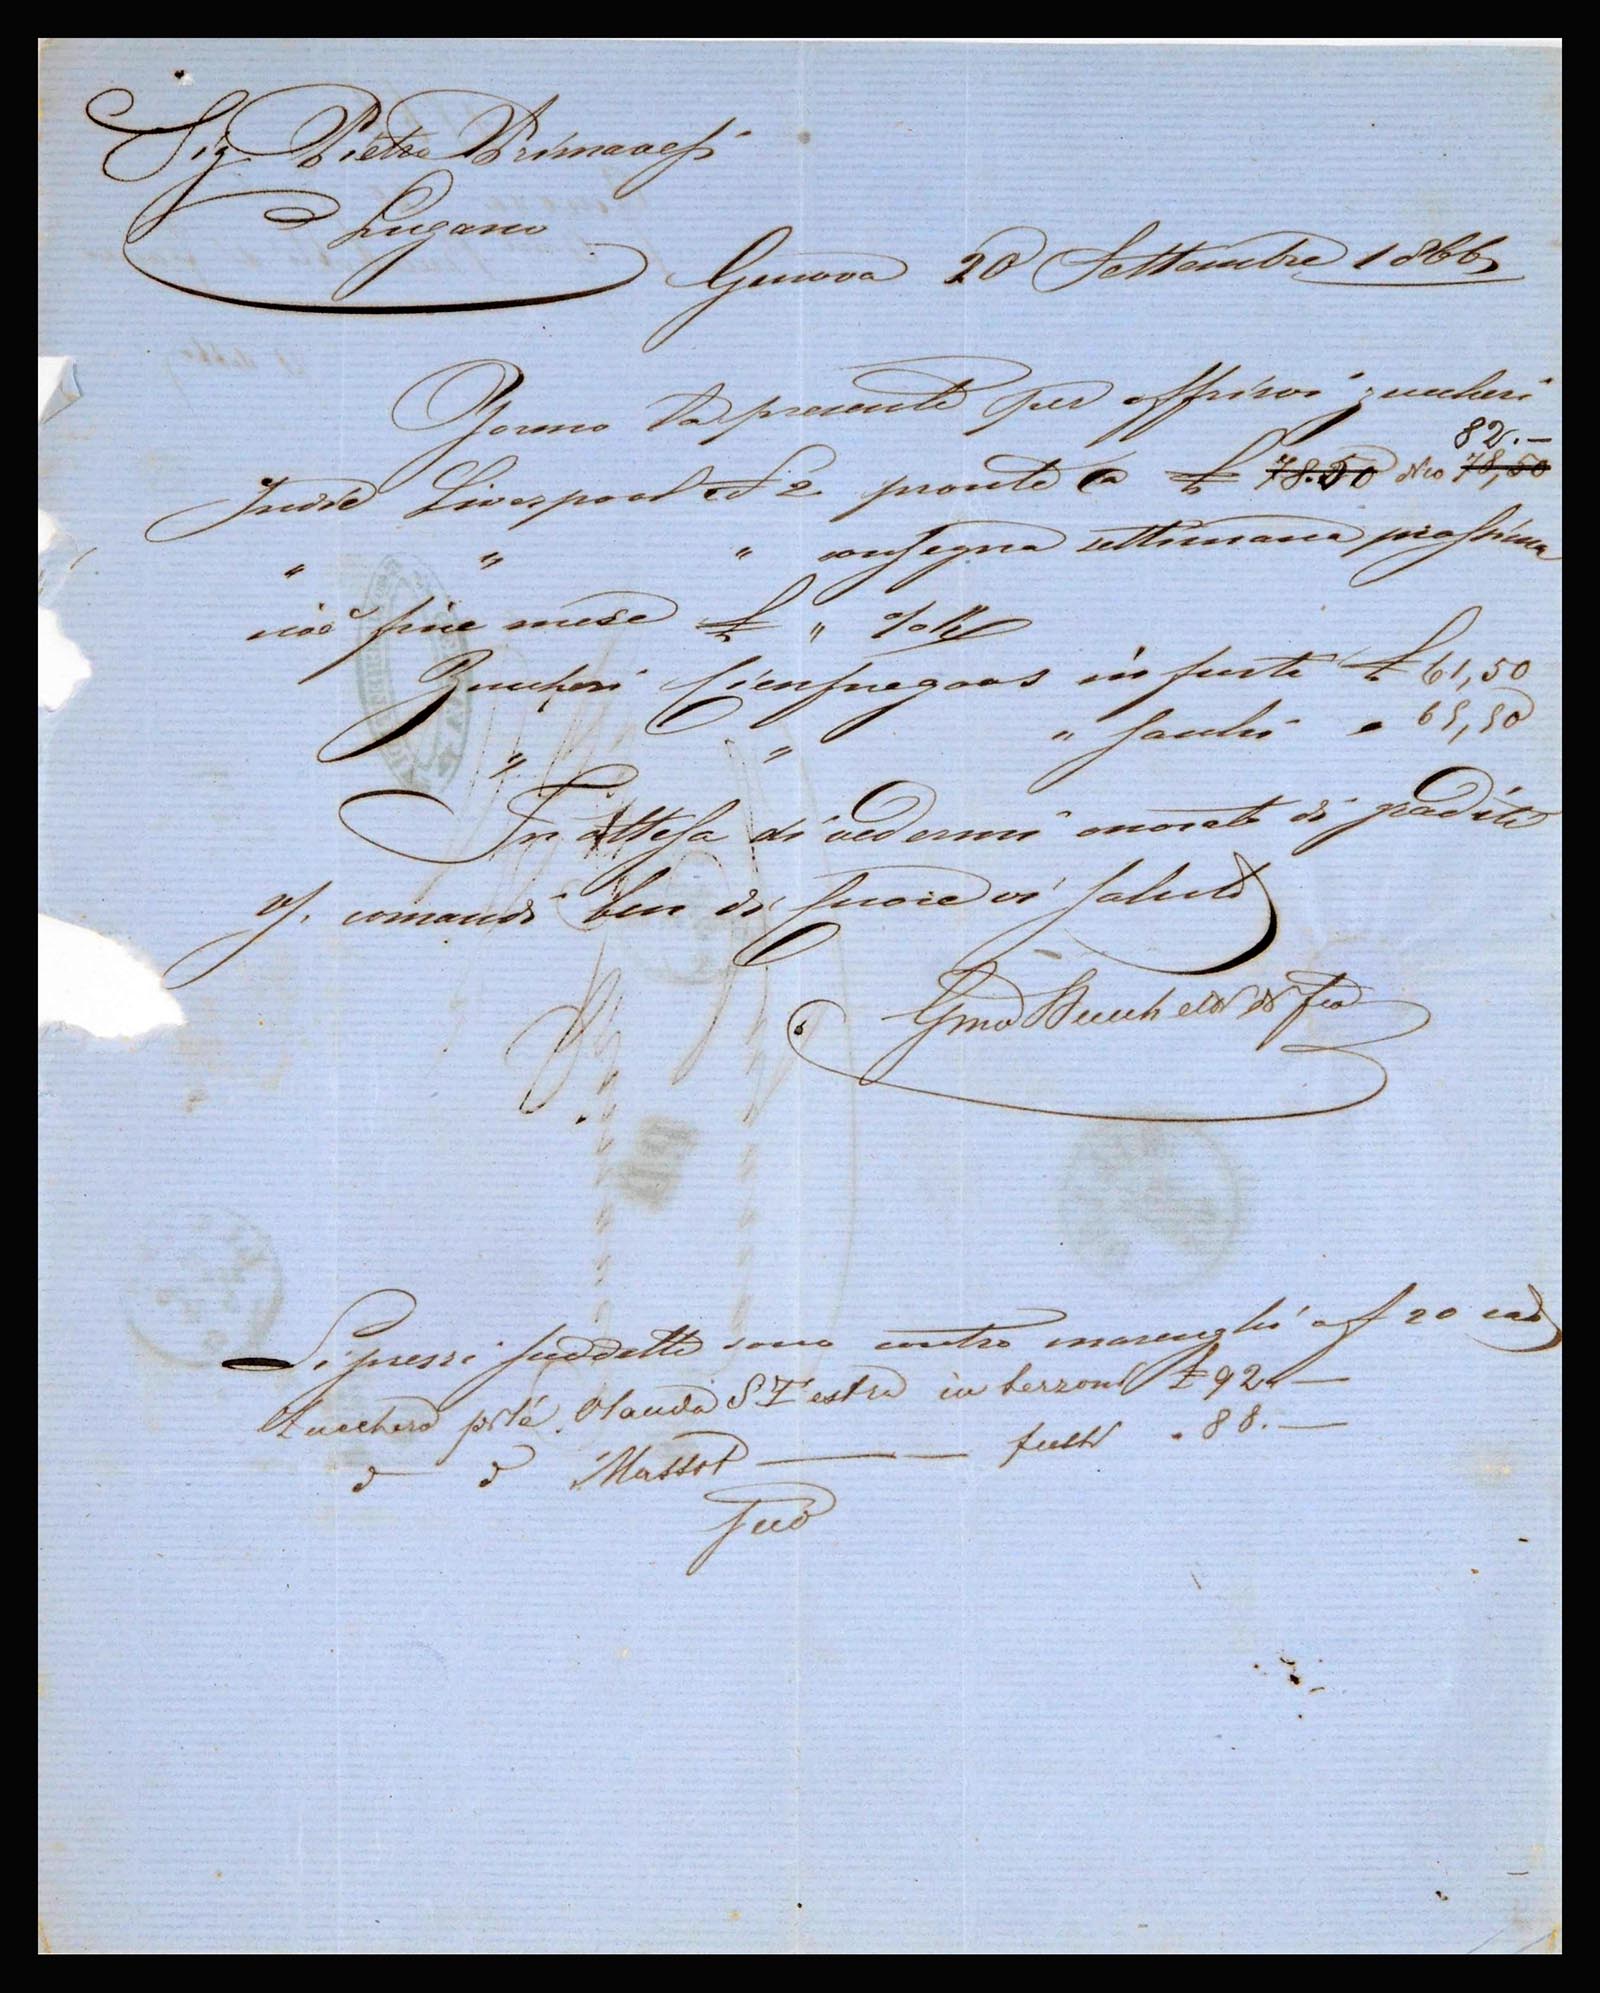 Sig Pietro Primavesi
Lugano
Genova 20 Settembre 1866
Formo la presente per offrirvi zuccheri
82.—
Liverpool N 2 pronte a £ 78.50 dico 78,50
" " " consegna settimana prossima
cioè fine mese £ "
Zuccheri Cienfuegoos in fusti £ 61,50
" " " sacchi " 65,50
In attesa di vedermi onorato di graditi
vs. comandi ben di cuore vi saluto
Li prezzi suddetti sono contro marenghi a f 20 cad
Zucchero pilé Olanda S T estra in terzoni £ 92.—
d d Massot — fusti " 88.—